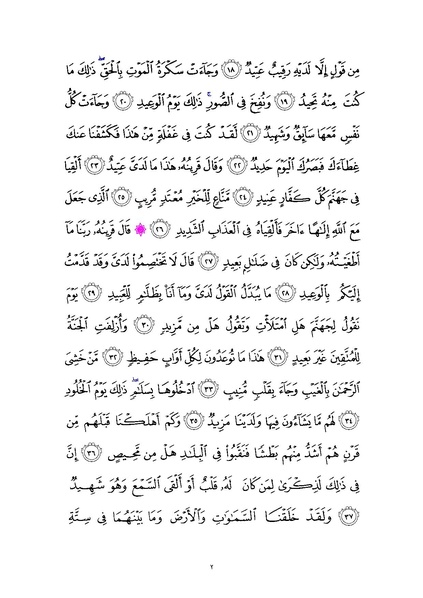 مِن قَوْلٍ إِلَّا لَدَيْهِ رَقِيبٌ عَتِيدٌ ۝١٨ وَجَآءَتْ سَكْرَةُ الْمَوْتِ بِالْحَقِّۖ ذَٰلِكَ مَا
كُنتَ مِنْهُ تَحِيدُ ۝١٩ وَنُفِخَ فِى الصُّورِۚ ذَٰلِكَ يَوْمُ الْوَعِيدِ ۝٢٠ وَجَآءَتْ كُلُّ
نَفْسٍ مَّعَهَا سَآئِقٌ وَشَهِيدٌ ۝٢١ لَّقَدْ كُنتَ فِى غَفْلَةٍ مِّنْ هَٰذَا فَكَشَفْنَا عَنكَ
غِطَآءَكَ فَبَصَرُكَ الْيَوْمَ حَدِيدٌ ۝٢٢ وَقَالَ قَرِينُهُۥ هَٰذَا مَا لَدَىَّ عَتِيدٌ ۝٢٣ أَلْقِيَا
فِى جَهَنَّمَ كُلَّ كَفَّارٍ عَنِيدٍ ۝٢٤ مَّنَّاعٍ لِّلْخَيْرِ مُعْتَدٍ مُّرِيبٍ ۝٢٥ الَّذِى جَعَلَ
مَعَ اللَّهِ إِلَٰهًا ءَاخَرَ فَأَلْقِيَاهُ فِى الْعَذَابِ الشَّدِيدِ ۝٢٦ قَالَ قَرِينُهُۥ رَبَّنَا مَآ
أَطْغَيْتُهُۥ وَلَٰكِن كَانَ فِى ضَلَٰلٍۭ بَعِيدٍ ۝٢٧ قَالَ لَا تَخْتَصِمُوا۟ لَدَىَّ وَقَدْ قَدَّمْتُ
إِلَيْكُم بِالْوَعِيدِ ۝٢٨ مَا يُبَدَّلُ الْقَوْلُ لَدَىَّ وَمَآ أَنَا۠ بِظَلَّٰمٍ لِّلْعَبِيدِ ۝٢٩ يَوْمَ
نَقُولُ لِجَهَنَّمَ هَلِ امْتَلَأْتِ وَتَقُولُ هَلْ مِن مَّزِيدٍ ۝٣٠ وَأُزْلِفَتِ الْجَنَّةُ
لِلْمُتَّقِينَ غَيْرَ بَعِيدٍ ۝٣١ هَٰذَا مَا تُوعَدُونَ لِكُلِّ أَوَّابٍ حَفِيظٍ ۝٣٢ مَّنْ خَشِىَ
الرَّحْمَٰنَ بِالْغَيْبِ وَجَآءَ بِقَلْبٍ مُّنِيبٍ ۝٣٣ ادْخُلُوهَا بِسَلَٰمٍۖ ذَٰلِكَ يَوْمُ الْخُلُودِ
۝٣٤ لَهُم مَّا يَشَآءُونَ فِيهَا وَلَدَيْنَا مَزِيدٌ ۝٣٥ وَكَمْ أَهْلَكْنَا قَبْلَهُم مِّن
قَرْنٍ هُمْ أَشَدُّ مِنْهُم بَطْشًا فَنَقَّبُوا۟ فِى الْبِلَٰدِ هَلْ مِن مَّحِيصٍ ۝٣٦ إِنَّ
فِى ذَٰلِكَ لَذِكْرَىٰ لِمَن كَانَ لَهُۥ قَلْبٌ أَوْ أَلْقَى السَّمْعَ وَهُوَ شَهِيدٌ
۝٣٧ وَلَقَدْ خَلَقْنَا السَّمَٰوَٰتِ وَالْأَرْضَ وَمَا بَيْنَهُمَا فِى سِتَّةِ
٢